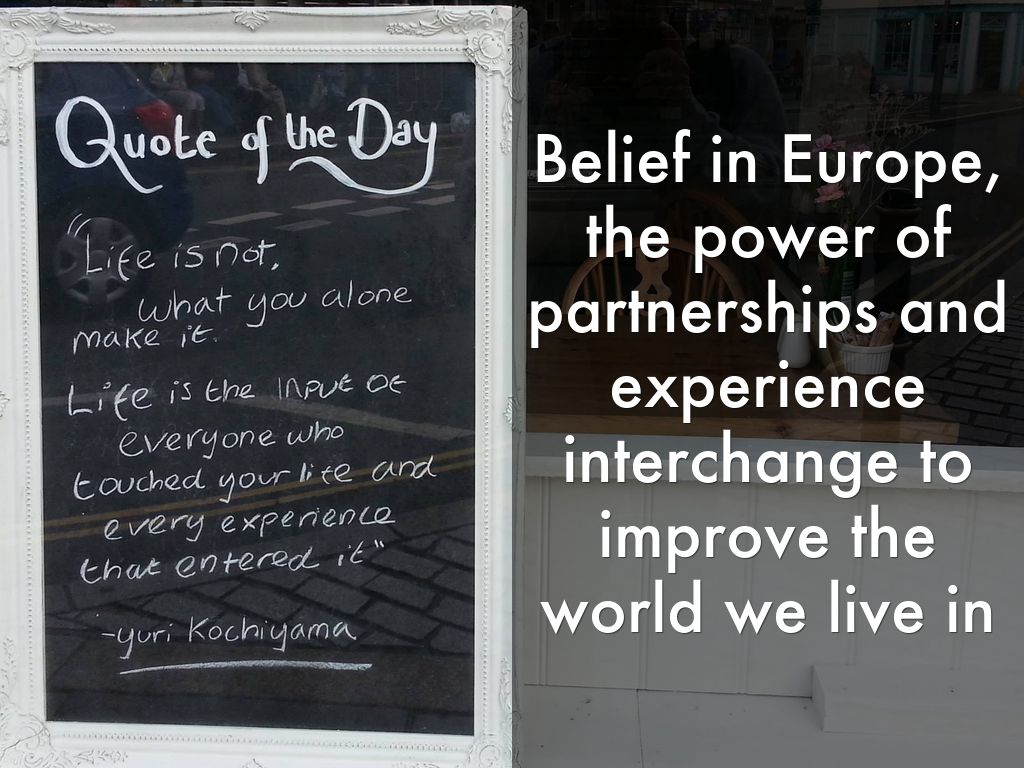 Quote of the Day
"Life is not,
what you alone
make it.
Life is the input of
everyone who
touched your life and
every experience
that entered it"
-yuri Kochiyama
Belief in Europe,
the power of
partnerships and
experience
interchange to
improve the
world we live in